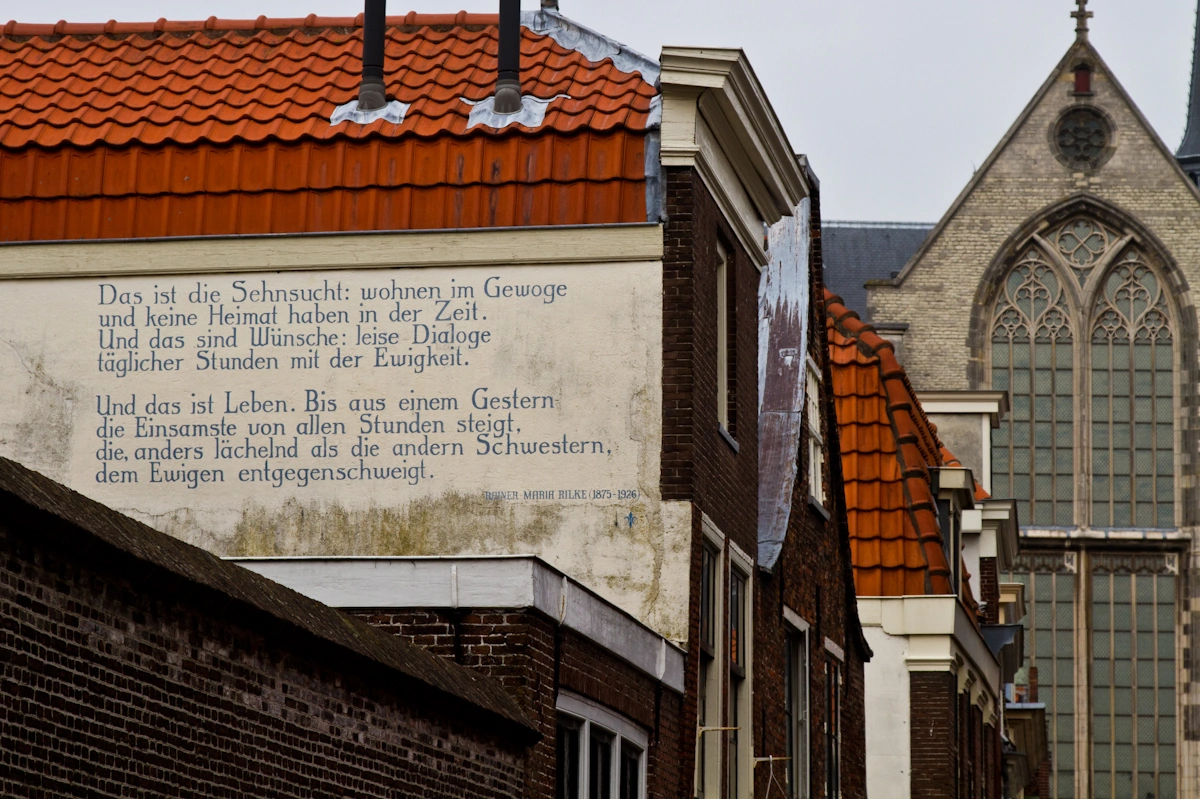 Das ist die Sehnsucht: wohnen im Gewoge
und keine Heimat haben in der Zeit.
Und das sind Wünsche: leise Dialoge
täglicher Stunden mit der Ewigkeit.
Und das ist Leben. Bis aus einem Gestern
die Einsamste von allen Stunden steigt,
die, anders lächelnd als die andern Schwestern,
dem Ewigen entgegenschweigt.
RAINER MARIA RILKE (1875-1926)